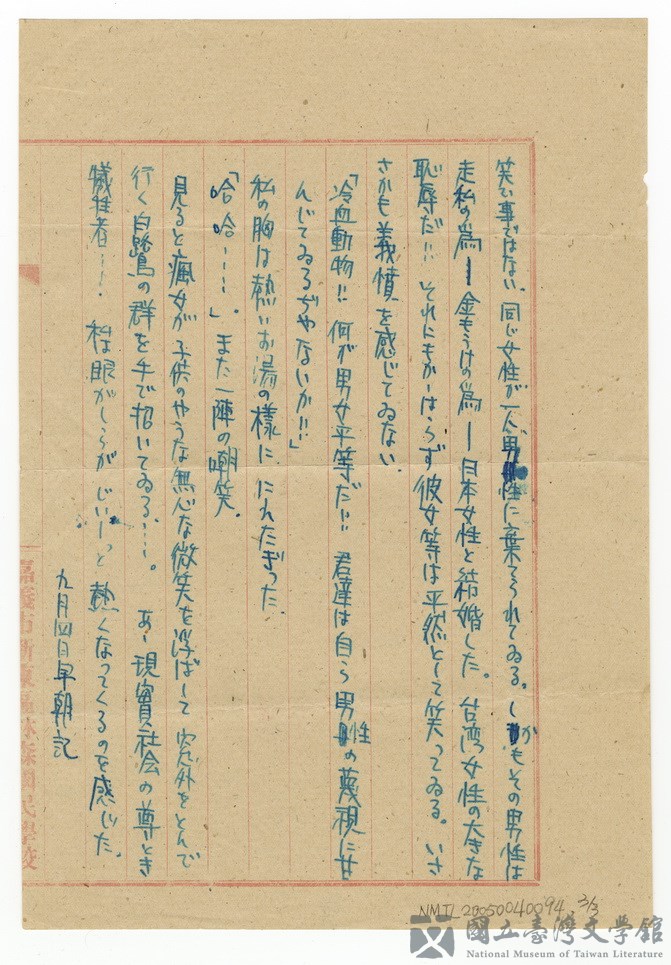 笑い事ではない、同じ女性が一人の男性に棄てられてゐる。しかもその男性は
走私の為――金もうけの為――日本女性と結婚した。台湾女性の大きな
恥辱だ!! それにもかゝはらず彼女等は平然として笑ってゐる。いさ
さかも義憤を感じてゐない、
「冷血動物!! 何が男女平等だ!! 君達は自ら男性の蔑視に甘
んじてゐるぢやないか!!」
私の胸は熱いお湯の様ににえたぎった、
「哈哈……」。また一陣の嘲笑、
見ると瘋女が子供のやうな無心な微笑を浮ばして窓外をとんで
行く白鷺の群を手で招いてゐる……。 あゝ現實社会の尊とき
犠牲者……。 私は眼がしらがじいーっと熱くなってくるのを感じた、
九月四日早朝記
嘉義市新東區林森國民學校
NMTL20050040094 3/3
國立臺灣文學館
National Museum of Taiwan Literature